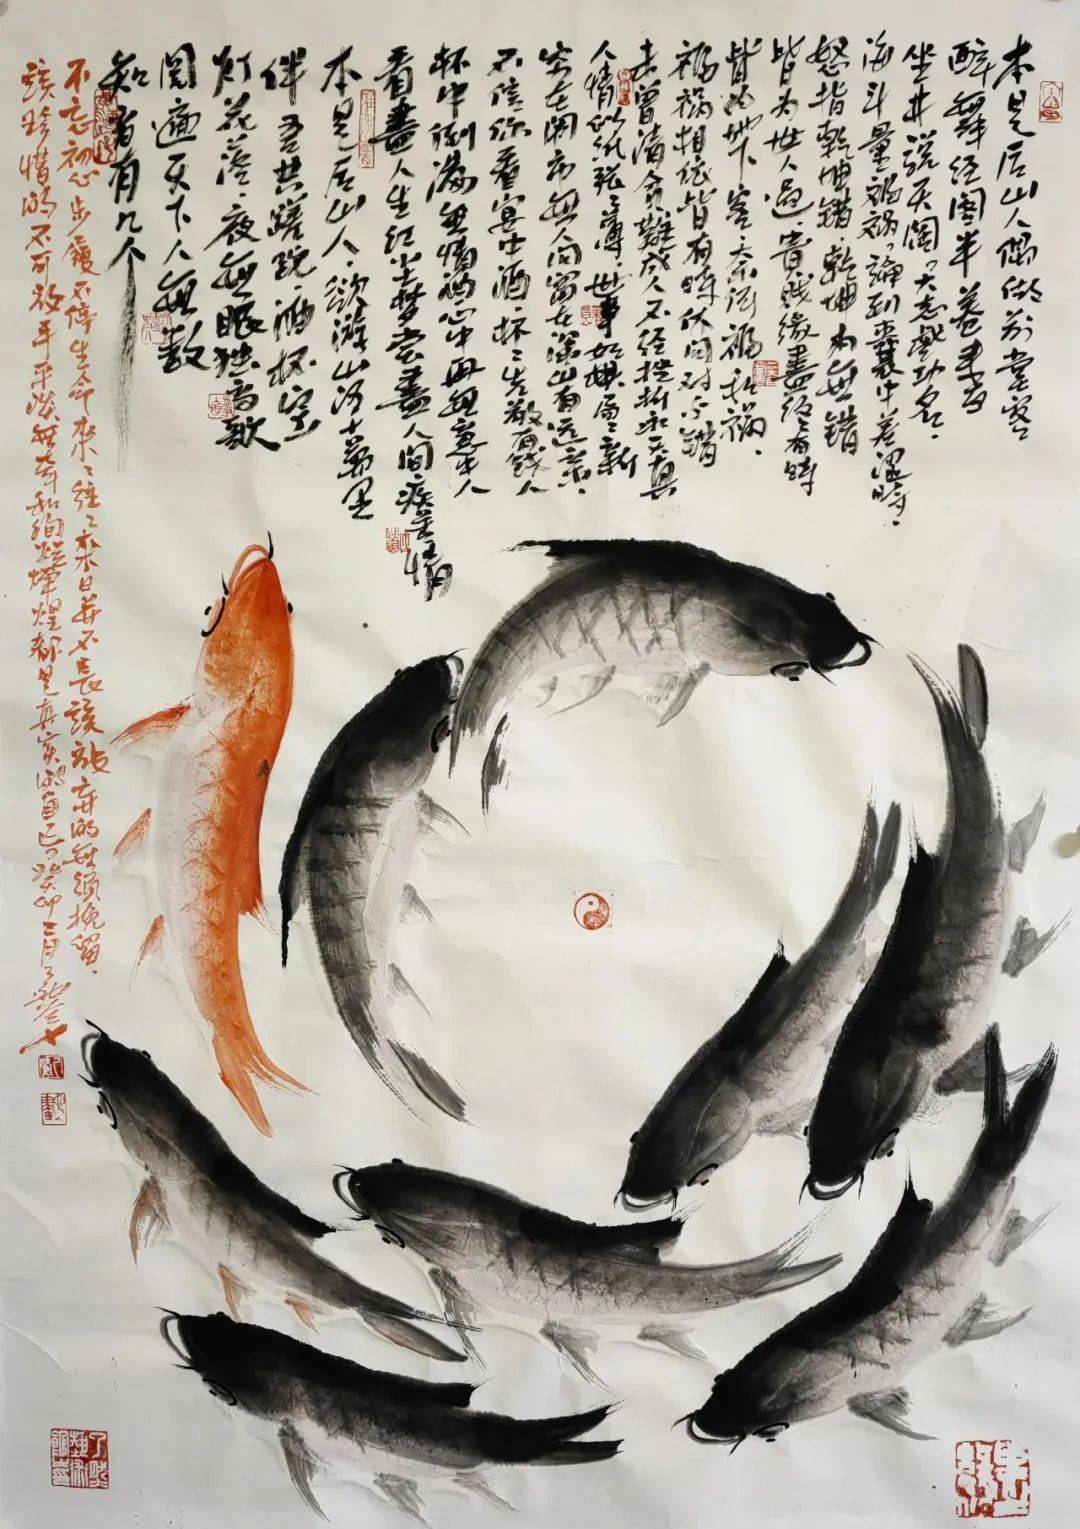 本是居山人偶做前堂客
醉舞经阁半卷书
坐井说天阔大志戏功名
海斗量福祸论到囊中羞涩时
怒指乾坤错乾坤本无错
皆为世人过贵贱缘尽终有时
皆为地下客奈何福和祸
福祸相依皆有时休问对与错
未曾清贫难成人不经挫折永天真
人情似纸张张薄世事如棋局局新
穷在闹市无人问富在深山有远亲
不信你看宴中酒杯杯先敬有钱人
杯中倒满无情酒心中再无意中人
看尽人生红尘梦尝尽人间疾苦情
本是居山人欲游山河十万里
伴吾共蹉跎酒杯空
灯花落夜无眠独高歌
阅遍天下人无数
知音有几个
不忘初心步履不停生命来来往往来日并不长该放弃的无须挽留
该珍惜的不可放手平淡无奇和绚烂辉煌都是真实的自己癸卯三月